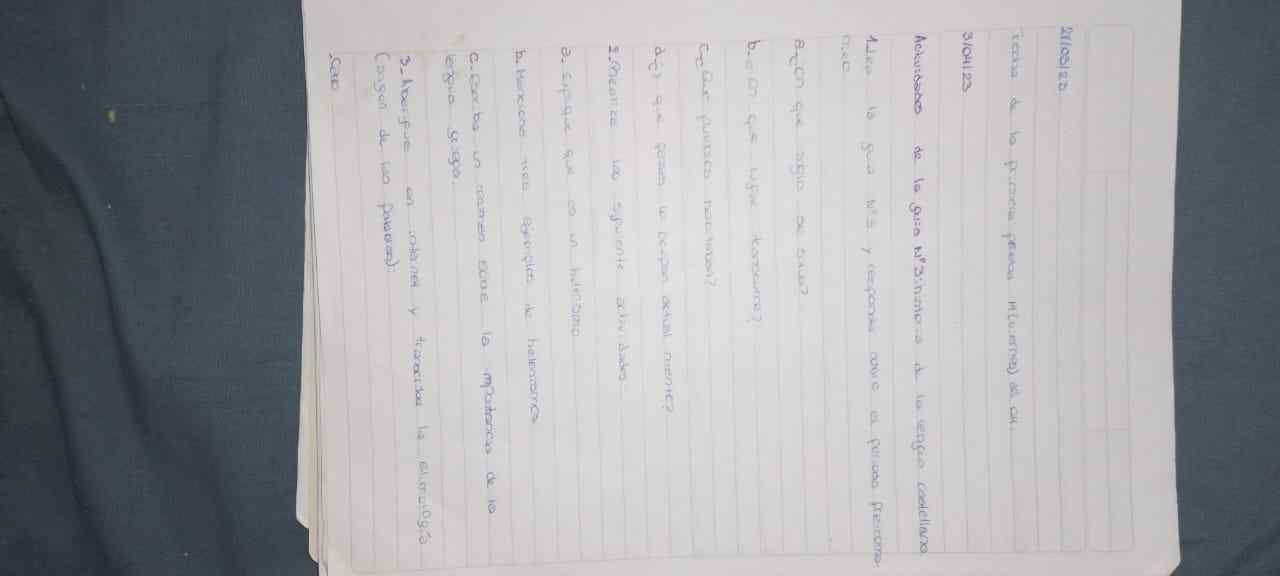 27/03/23
Fecha de la primera prueba M(viernes) de
3/04/23
Actividades de la guia N°3:historia de la lengua castellana
1.Lea la guia N°3 y responda sobre el periodo preroma-
a-¿En que siglo se situa?
b.¿En que lugar transcurre?
c¿Que pueblos habitaban?
d¿Y que paises lo ocupan actualmente?
2.Realice las siguiente actividades
a. Explique que es un helenismo
b. Mencione tres ejemplos de helenismos
c. Escriba un resumen sobre la importancia de la
lengua griega.
3-Averigue en internet y transcriba la etimologia
(origen de las palabras):